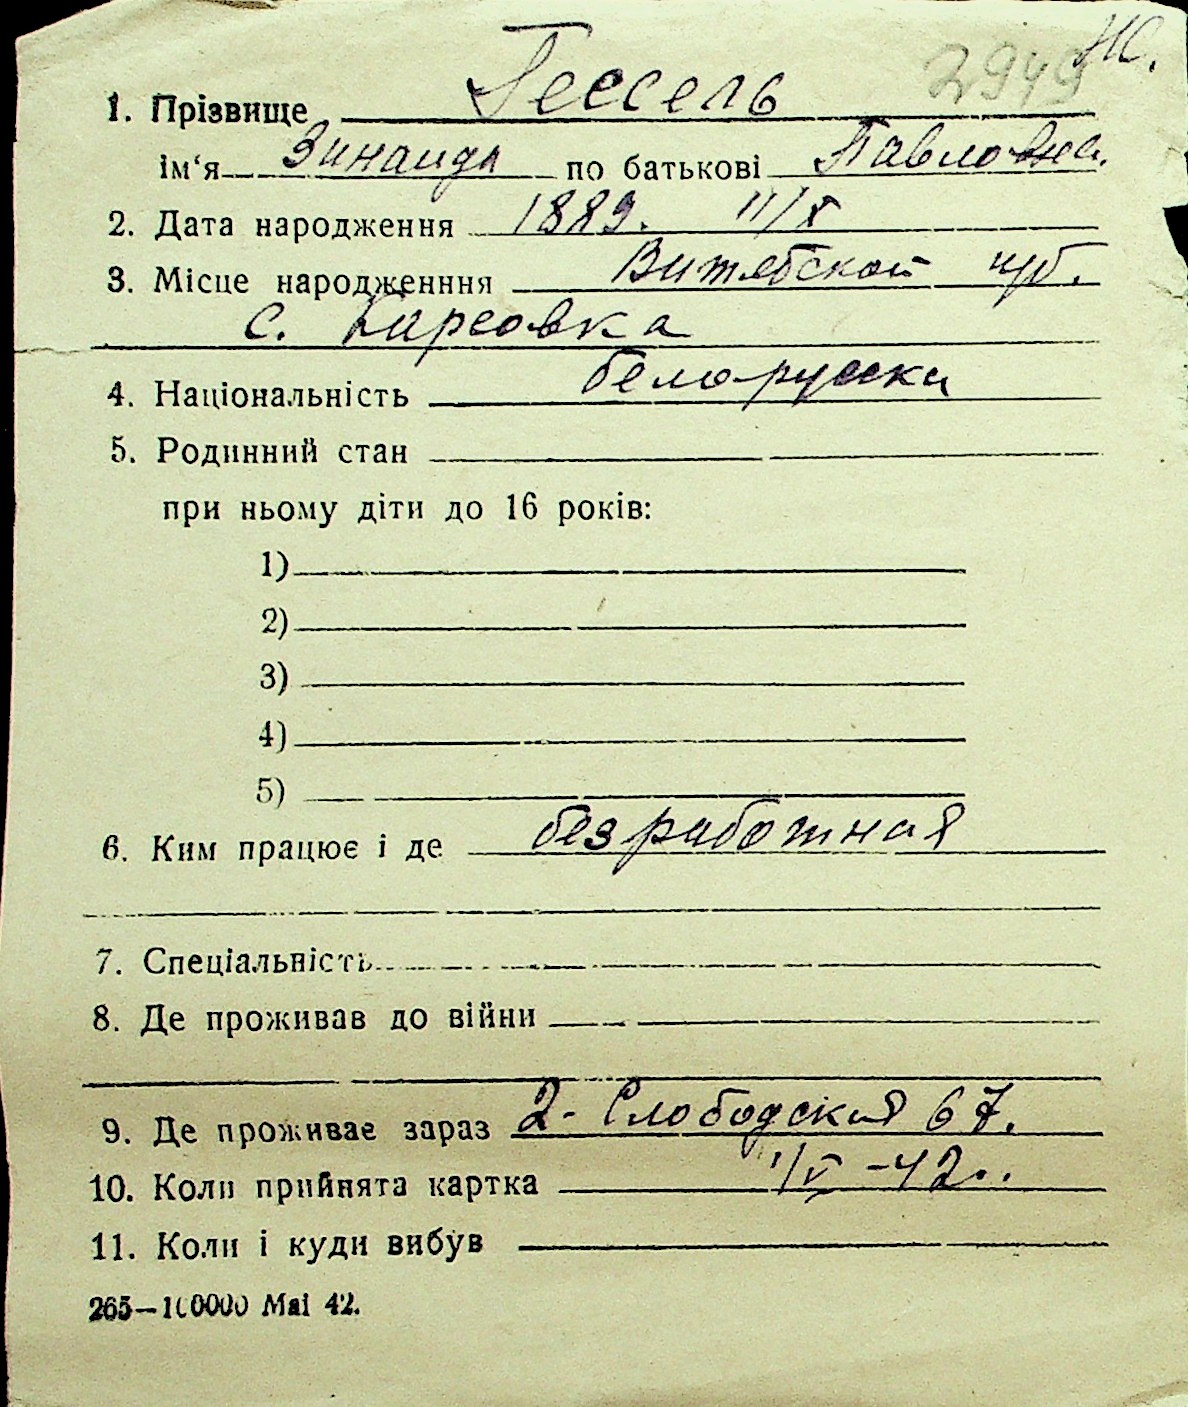 2949 НС.
1. Прізвище Гессель
ім'я Зинаида по батькові Павловна.
2. Дата народження 1889. 11/X
3. Місце народженння Витебской губ.
с. Карсовка
4. Національність белорусска
5. Родинний стан
при ньому діти до 16 років:
1)
2)
3)
4)
5)
6. Ким працює і де безработная
7. Спеціальність
8. Де проживав до війни
9. Де проживає зараз 2-Слободская 67.
10. Коли прийнята картка 1/V-42
11. Коли і куди вибув
265—100000 Mai 42.